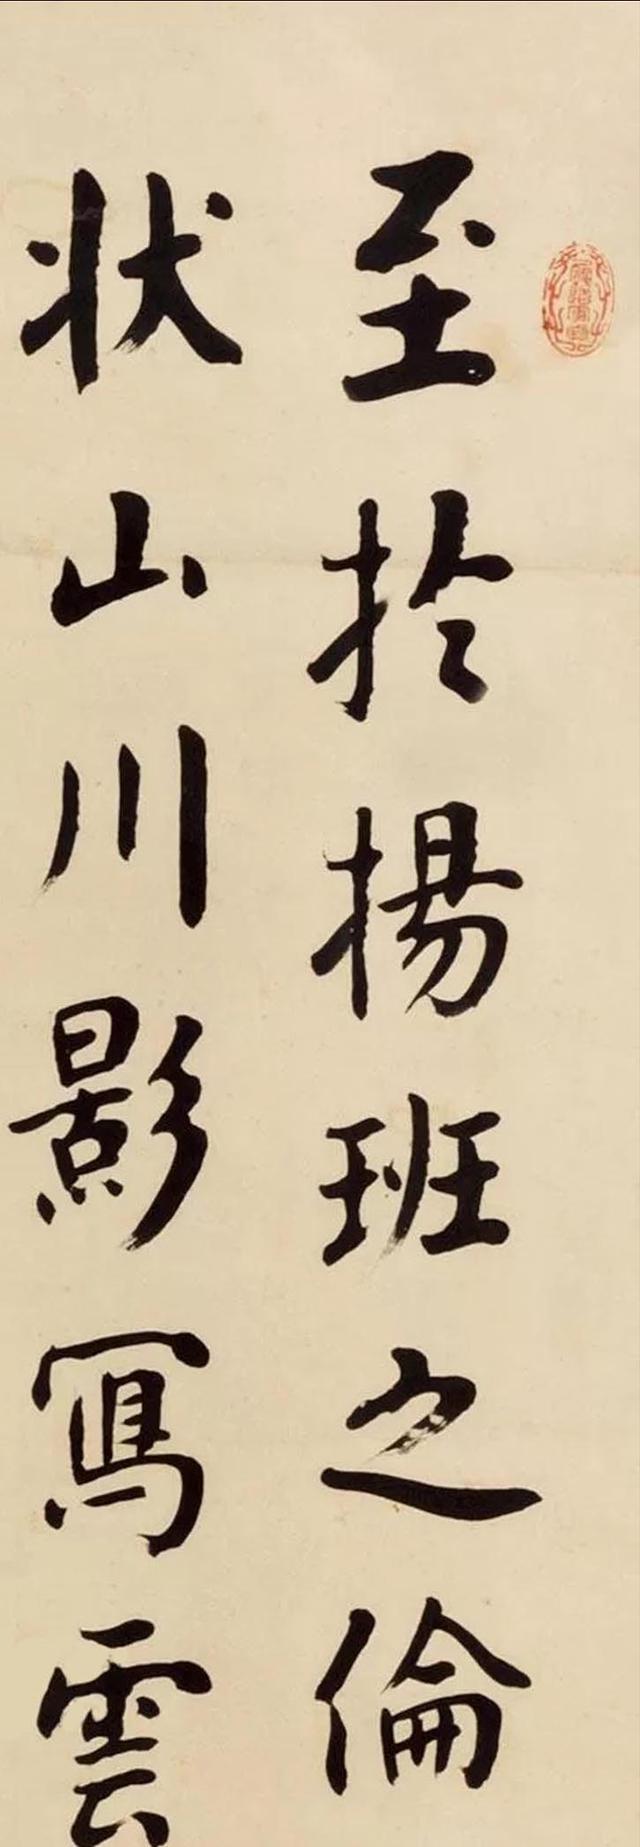 至於揚班之倫
状山川影寫雲